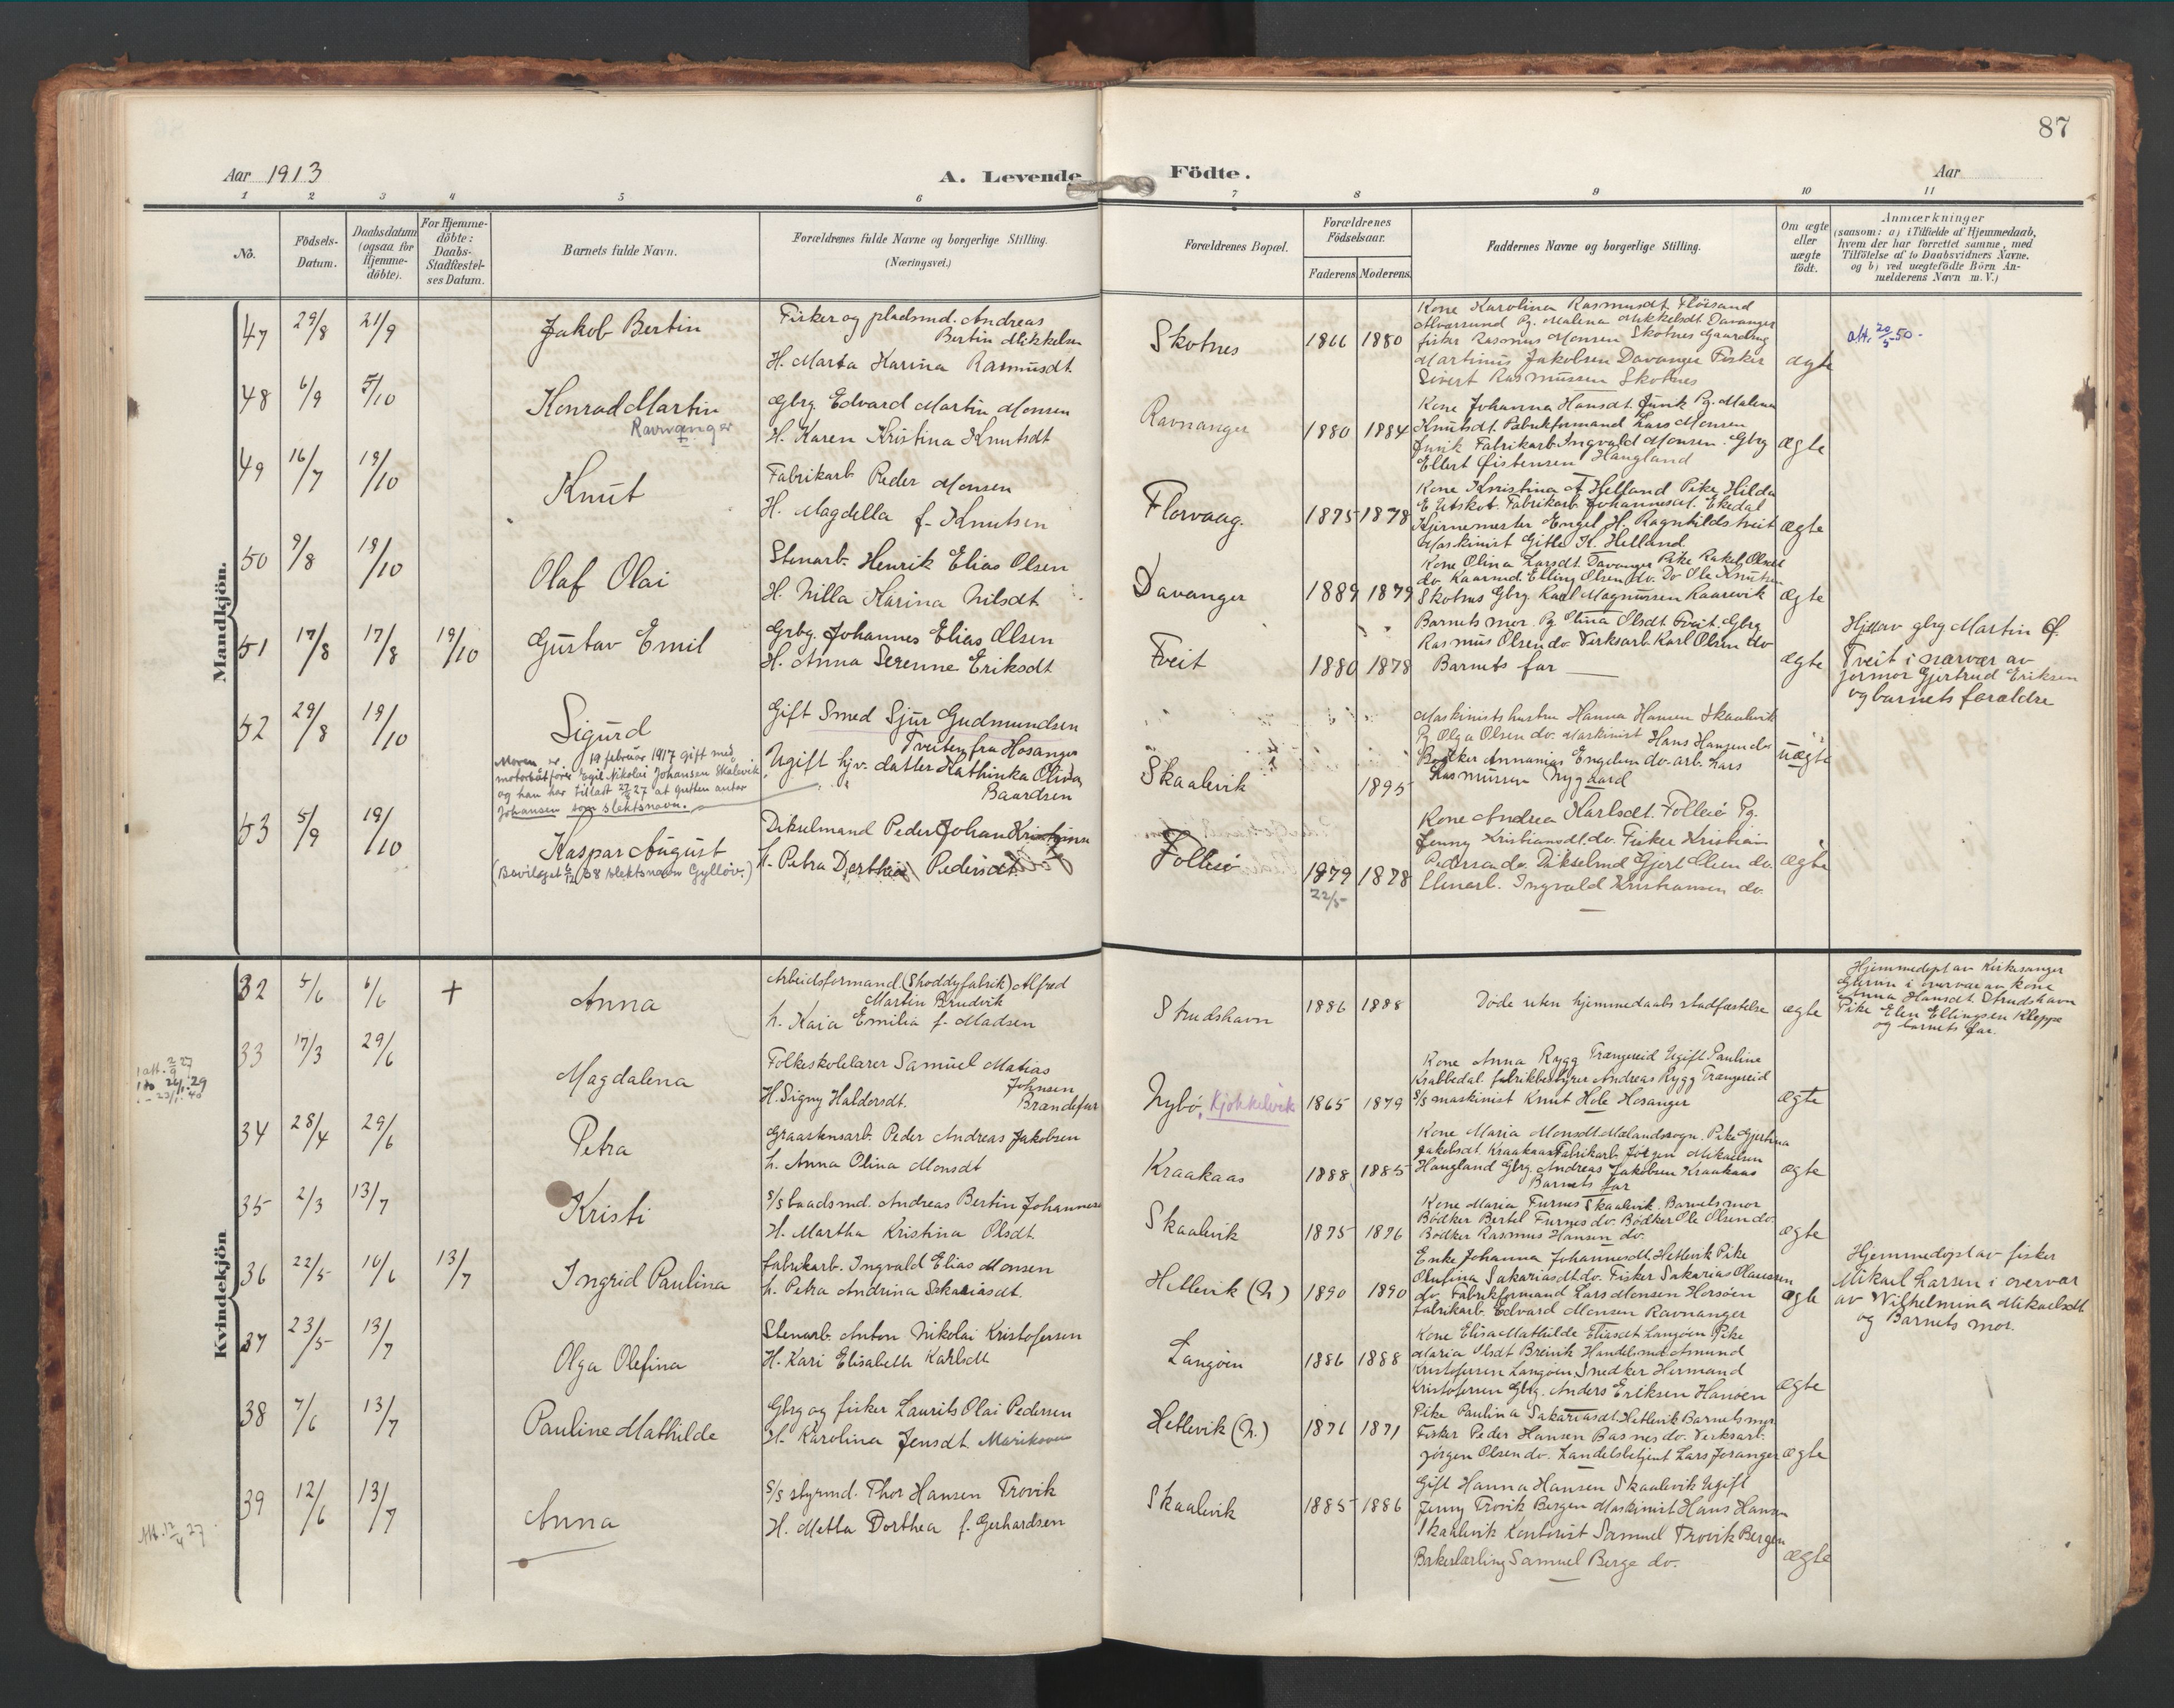 87
Aar 1913
A. Levende
Födte.
Aar
1 2 3 4 5 6 7 8 9 10 11
No.
Födsels-Datum.
Daabsdatum (ogsaa for Hjemme-döbte).
For Hjemme-döbte: Daabs-Stadfæstel-ses Datum.
Barnets fulde Navn.
Forældrenes fulde Navne og borgerlige Stilling.
(Næringsvei.)
Forældrenes Bopæl.
Forældrenes Födselsaar.
Faderens. Moderens.
Faddernes Navne og borgerlige Stilling.
Om ægte eller uægte födt.
Anmærkninger
(saasom: a) i Tilfælde af Hjemmedaab,
hvem der har forrettet samme, med
Tilföielse af to Daabsvidners Navne.
og b) ved uægtefödte Börn An-
melderens Navn m. V.)
Mandkjön.
47 29/8 21/9 Jakob Bertin
Fisker og pladsmd. Andreas
Bertin Mikkelsen
H. Marta Karina Rasmusdt
Skotnes 1866 1880
Kone Karolina Rasmusdt Flöisand
Alversund Pg. Malena Mikkelsdt Davanger
fisker Rasmus Monsen Skotnes Gaardbrug
Martinus Jakobsen Davanger Fisker
Sivert Rasmussen Skotnes
ægte
att. 20/5 50.
48 6/9 5/10 Konrad Martin
Ravnanger
Gbrg. Edvard Martin Monsen
H. Karen Kristina Knutsdt
Ravnanger 1880 1884
Kone Johanna Hansdt. Junik Pg. Malena
Knutsdt. Fabrikformand Lars Monsen
Junik Fabrikarb Ingvald Monsen. Gbrg
Ellert Øistensen Haugland
ægte
49 16/7 19/10 Knut
Fabrikarb Peder Monsen
H. Magdella f. Knutsen
Florvaag. 1875 1878
Kone Kristina A Helland Pike Hilda
E Utskot. Fabrikarb Johannes Ekedal
Engel H. Ragnhildstveit
Maskinist Gitle K. Helland.
ægte
50 9/8 19/10 Olaf Olai
Stenarb. Henrik Elias Olsen
H. Nilla Karina Nilsdt
Davanger 1889 1879
Kone Olina Larsdt. Davanger Pike Rakel Olsdt
do. Kaarmd. Elling Olsen do. Do Ole Knutsen
Skotnes Gbrg. Karl Magnussen Kaarevik
ægte
51 17/8 17/8 19/10 Gustav Emil
Grbg. Johannes Elias Olsen
H. Anna Serenne Eriksdt
Tveit 1880 1878
Barnets mor. Pg Stina Olsdt Tveit. Gbrg
Rasmus Olsen do. Verksarb. Karl Olsen do
Barnets far
ægte
Hj. av gbrg Martin O.
Tveit i nærvær av
jormor Gjertrud Eriksen
og barnets forældre
52 29/8 19/10 Sigurd
Moren er 19 februar 1917 gift med
motorbåtfører Egil Nikolai Johansen Skålevik
og han har tillatt 27/5 27 at gutten antar
Johansen som slektsnavn.
Gift Smed Sjur Gudmundsen
Tveiten fra Hosanger
Ugift hj.v. datter Kathinka Oliva
Baardsen
Skaalevik 1895
Maskinists hustru Hanna Hansen Skaalevik
Pg. Olga Olsen do. Maskinist Hans Hansen do
Bødker Annanias Engelsen do. arb. Lars
Rasmussen Nygaard
uægte
53 5/9 19/10 Kaspar August
(Bevilget 6/12 68 slektsnavn Gylløv.)
Dikselmand Peder Johan
H. Petra Dorthea Pedersdt
Follesø 1879 1878
22/5
Kone Andrea Karlsdt. Follesø Pg.
Jenny Kristiansdt. do. Fisker Kristian
Pedersen do. Dikselmd Gjert Olsen do.
Stenarb. Ingvald Kristiansen do.
ægte
Kvindekjön
32 5/6 6/6 + Anna
Arbeidsformand (Shoddyfabrik) Alfred
Martin Brudvik
h. Kaia Emilia f. Madsen
Strudshavn 1886 1888
Døde uten hjemmedaabs stadfæstelse
ægte
Hjemmedøpt av Kirkesanger
i overvær av kone
Anna Hansdt. Strudshavn
Pike Elen Ellingsen Kleppe
og barnets far.
33 17/3 29/6 Magdalena
1 att. 2/9 27
1 do 24/1. 29
1 - 23/1. 40
Folkeskolelærer Samuel Matias
Johnsen
H. Signy Haldorsdt.
Brandefur
Nybø, Kjøkkelvik 1865 1879
Kone Anna Rygg Trængereid Ugift Pauline
Krabbedal. fabrikbestyrer Andreas Rygg Trængereid
s/s maskinist Knut Hole Hosanger
ægte
34 28/4 29/6 Petra
Graastensarb. Peder Andreas Jakobsen
h. Anna Olina Monsdt
Kraakaas 1888 1885
Kone Maria Monsdt. Mælandssogn. Pike Gjertina
Jakobsdt. Kraakaas Fabrikarb. Jörgen Mikaelsen
Haugland Gbrg. Andreas Jakobsen Kraakaas
Barnets far
ægte
35 2/3 13/7 Kristi
s/s baadsmd. Andreas Bertin Johannesen
H. Martha Kristina Olsdt
Skaalevik 1875 1876
Kone Maria Furnes Skaalevik. Barnets mor
Bødker Bertel Furnes do. Bødker Ole Olsen do.
Bødker Rasmus Hansen do.
ægte
36 22/5 10/6 13/7 Ingrid Paulina
fabrikarb. Ingvald Elias Monsen
h. Petra Andrina Sakariasdt.
Hetlevik (N.) 1890 1890
Enke Johanna Johannesdt. Hetlevik Pike
Olufina Sakariasdt. do. Fisker Sakarias Olaussen
do. Fabrikformand Lars Monsen Horsøen
fabrikarb. Edvard Monsen Ravnanger
ægte
Hjemmedøpt av fisker
Mikael Larsen i overvær
av Vilhelmina Mikaelsdt
og Barnets mor.
37 23/5 13/7 Olga Olefina
Stenarb. Anton Nikolai Kristofersen
H. Kari Elisabeth Karlsdt
Langøen 1886 1888
Kone Elisa Mathilde Eliasdt Langøen Pike
Maria Olsdt Breivik Handelsmd Amund
Kristofersen Langøen, Snedker Hermand
Kristofersen Gbrg. Anders Eriksen Hansen
ægte
38 7/6 13/7 Pauline Mathilde
Gbrg og fisker Laurits Olai Pedersen
H. Karolina Jensdt. Marikoven
Hetlevik (N.) 1876 1871
Pike Paulina Sakariasdt. Hetlevik Barnets mor
Fisker Peder Hansen Basnes do. Verksarb.
Jörgen Olsen do. Landelsbetjent Lars Joranger
ægte
39 12/6 13/7 Anna
Att. 12/4 27
s/s styrmd. Thor Hansen Trovik
H. Metta Dorthea f. Gerhardsen
Skaalevik 1885 1886
Gift Hanna Hansen Skaalevik Ugift
Jenny Trovik Bergen Maskinist Hans Hansen
Skaalevik Kontorist Samuel Trovik Bergen
Bakerlærling Samuel Berge do.
ægte